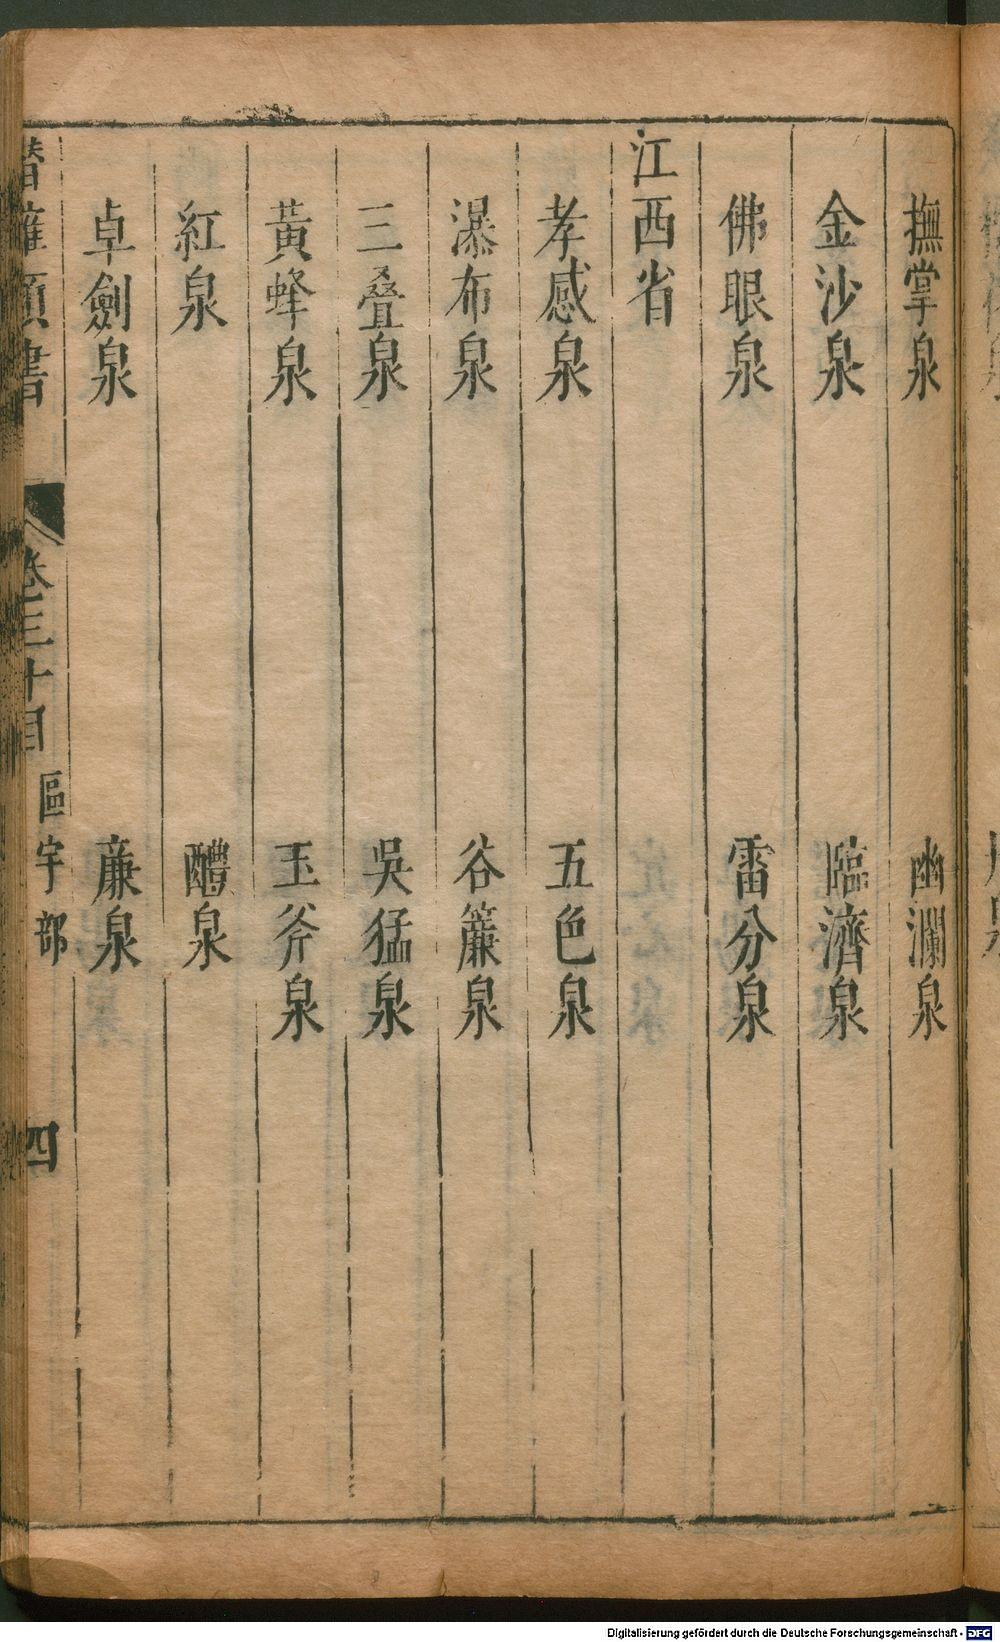 撫掌泉　幽瀾泉
金沙泉　臨濟泉
佛眼泉　雷分泉
江西省
孝感泉　五色泉
瀑布泉　谷簾泉
三疊泉　吳猛泉
黃蜂泉　玉斧泉
紅泉　醴泉
卓劍泉　廉泉
潛確類書　卷三十目　區宇部　四
Digitalisierung gefördert durch die Deutsche Forschungsgemeinschaft - DFG